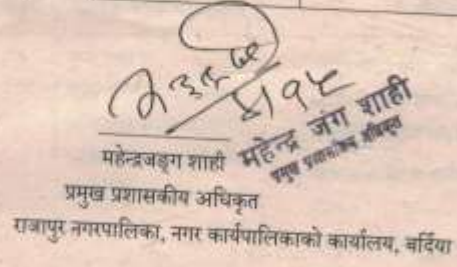 ५।१५
महेन्द्र जंग शाही
प्रमुख प्रशासकीय अधिकृत
महेन्द्रजङ्ग शाही
प्रमुख प्रशासकीय अधिकृत
राजापुर नगरपालिका, नगर कार्यपालिकाको कार्यालय, बर्दिया